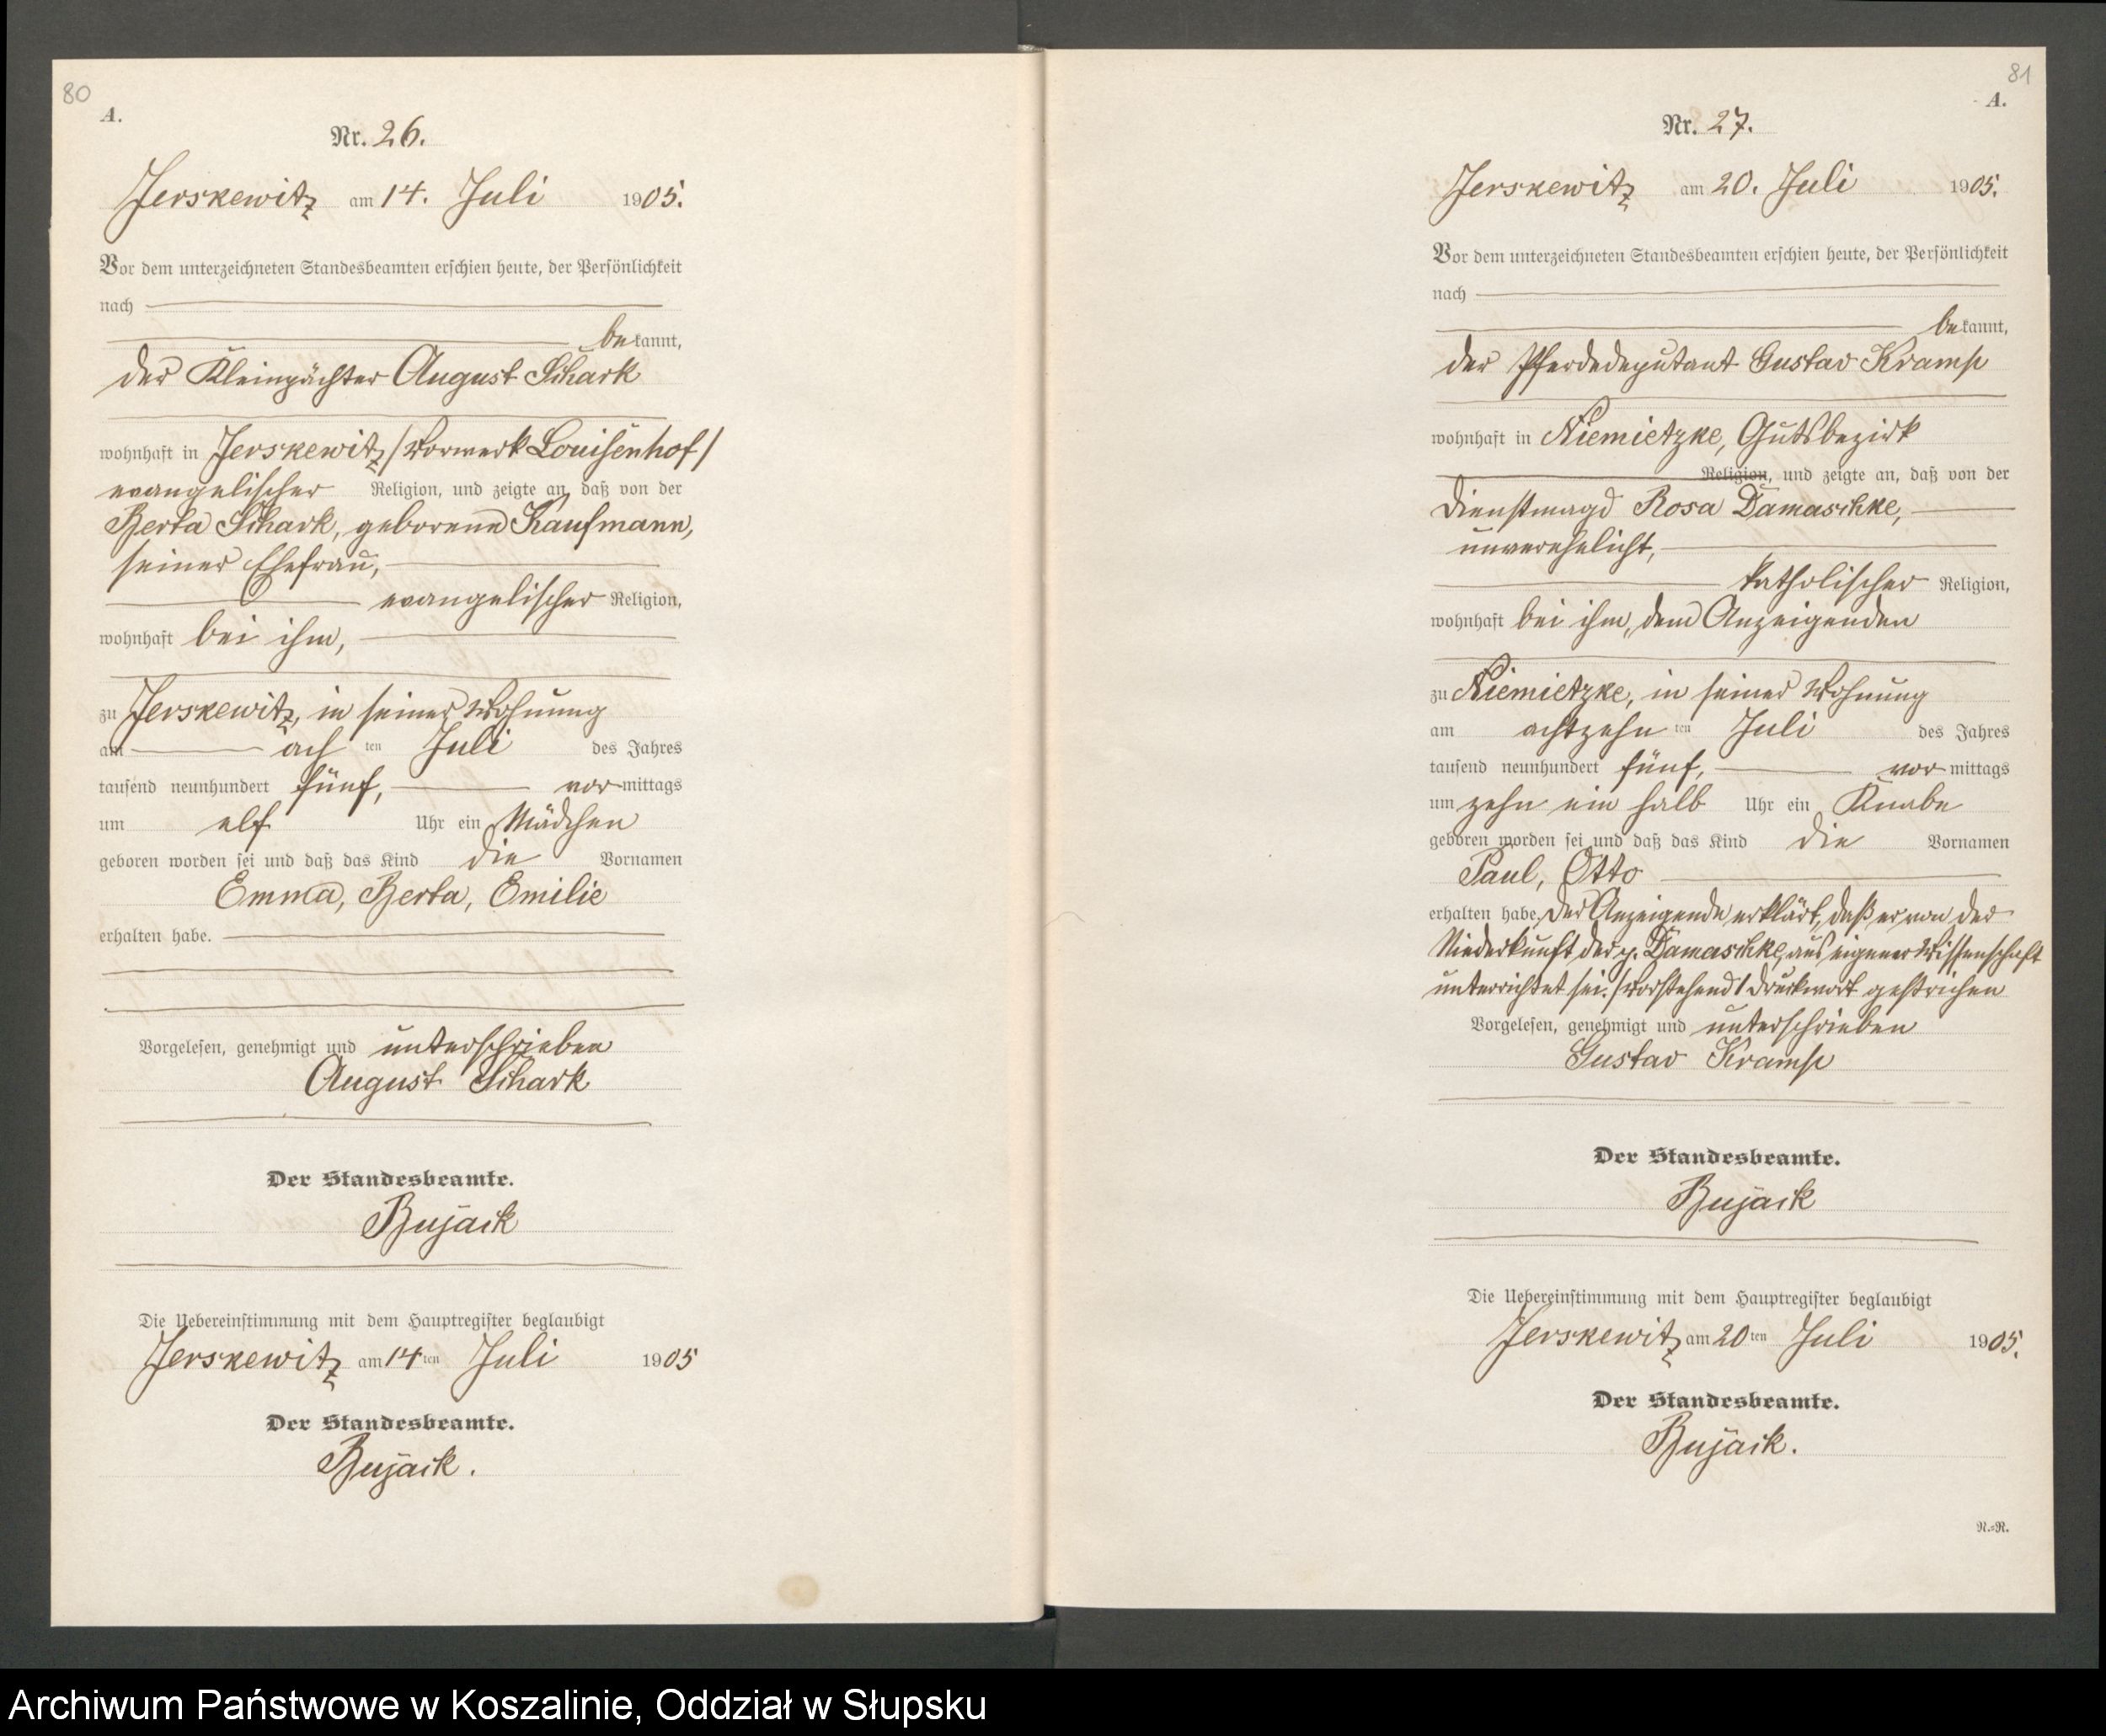 80
A.
Nr. 26.
Jerskewitz am 14. Juli 1905.
Vor dem unterzeichneten Standesbeamten erschien heute, der Persönlichkeit
nach
bekannt,
der Kleinpächter August Schark
wohnhaft in Jerskewitz /Vorwerk Louisenhof/
evangelischer Religion, und zeigte an, daß von der
Berta Schark, geborene Kaufmann,
seiner Ehefrau,
evangelischer Religion,
wohnhaft bei ihm,
zu Jerskewitz, in seiner Wohnung
am ach ten Juli des Jahres
tausend neunhundert fünf, vormittags
um elf Uhr ein Mädchen
geboren worden sei und daß das Kind die Vornamen
Emma, Berta, Emilie
erhalten habe.
Vorgelesen, genehmigt und unterschrieben
August Schark
Der Standesbeamte.
Bujack
Die Uebereinstimmung mit dem Hauptregister beglaubigt
Jerskewitz am 14ten Juli 1905
Der Standesbeamte.
Bujack.
81
A.
Nr. 27.
Jerskewitz am 20. Juli 1905.
Vor dem unterzeichneten Standesbeamten erschien heute, der Persönlichkeit
nach
bekannt,
der Pferdedeputant Gustav Kramp
wohnhaft in Niemietzke, Gutsbezirk
Religion, und zeigte an, daß von der
Dienstmagd Rosa Damaschke,
unverehelicht,
katholischer Religion,
wohnhaft bei ihm, dem Anzeigenden
zu Niemietzke, in seiner Wohnung
am achtzehn ten Juli des Jahres
tausend neunhundert fünf, vormittags
um zehn ein halb Uhr ein Knabe
geboren worden sei und daß das Kind die Vornamen
Paul, Otto
erhalten habe. Der Anzeigende erklärt, daß er von der
Niederkunft der p. Damaschke, aus eigener Wissenschaft
unterrichtet sei. /Vorstehend 1 Druckwort gestrichen
Vorgelesen, genehmigt und unterschrieben
Gustav Kramp
Der Standesbeamte.
Bujack
Die Uebereinstimmung mit dem Hauptregister beglaubigt
Jerskewitz am 20ten Juli 1905.
Der Standesbeamte.
Bujack.
N.=R.
Archiwum Państwowe w Koszalinie, Oddział w Słupsku